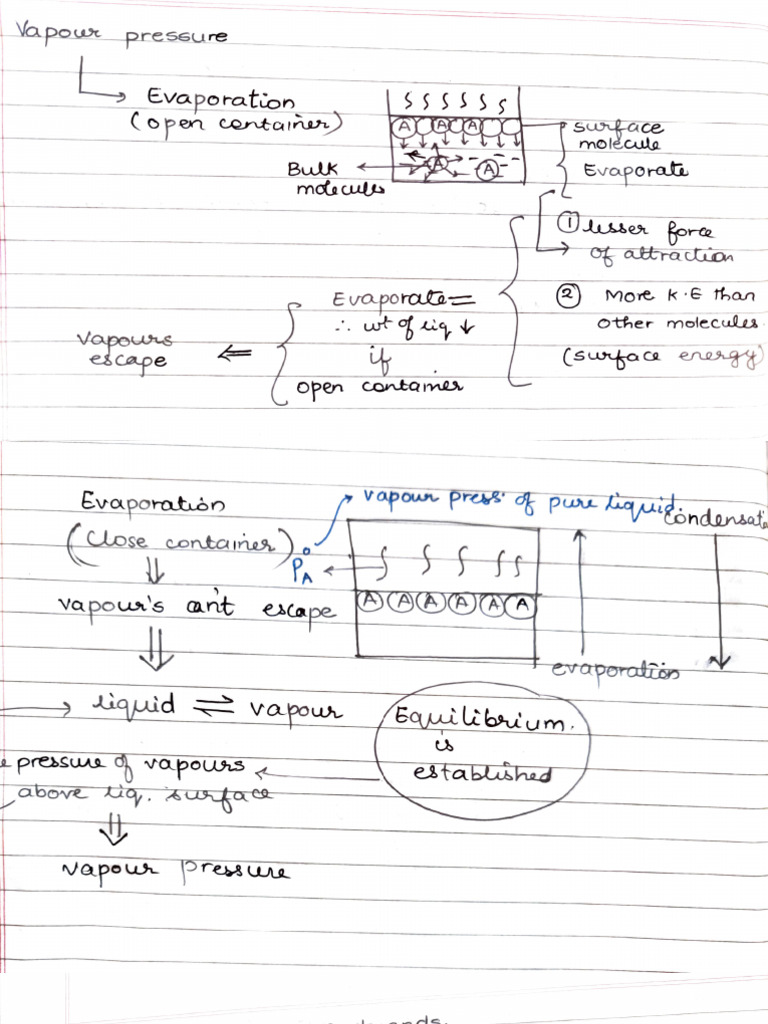 Vapour pressure
Evaporation
(open container)
A A A
surface
molecule
Evaporate
Bulk
molecules
A A
① lesser force
of attraction
② More K.E than
other molecules.
(surface energy)
Evaporate =
∴ wt of liq ↓
if
open container
Vapours
escape
⇐
Evaporation
(Close container)
⇓
vapour's can't escape
⇓
P°A
vapour press. of pure liquid
A A A A A A
evaporation
condensat
→ liquid ⇌ vapour
Equilibrium.
is
established
e pressure of vapours
above liq. surface
⇓
vapour pressure